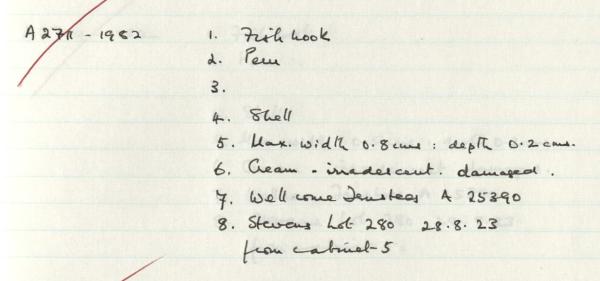 A271 - 1982 1. Fish hook
2. Peru
3.
4. Shell
5. Max. width 0.8 cms : depth 0.2 cms.
6. Cream - irradescent. damaged.
7. Wellcome Trustees A 25390
8. Stevens Lot 280 28.8.23
from cabinet 5